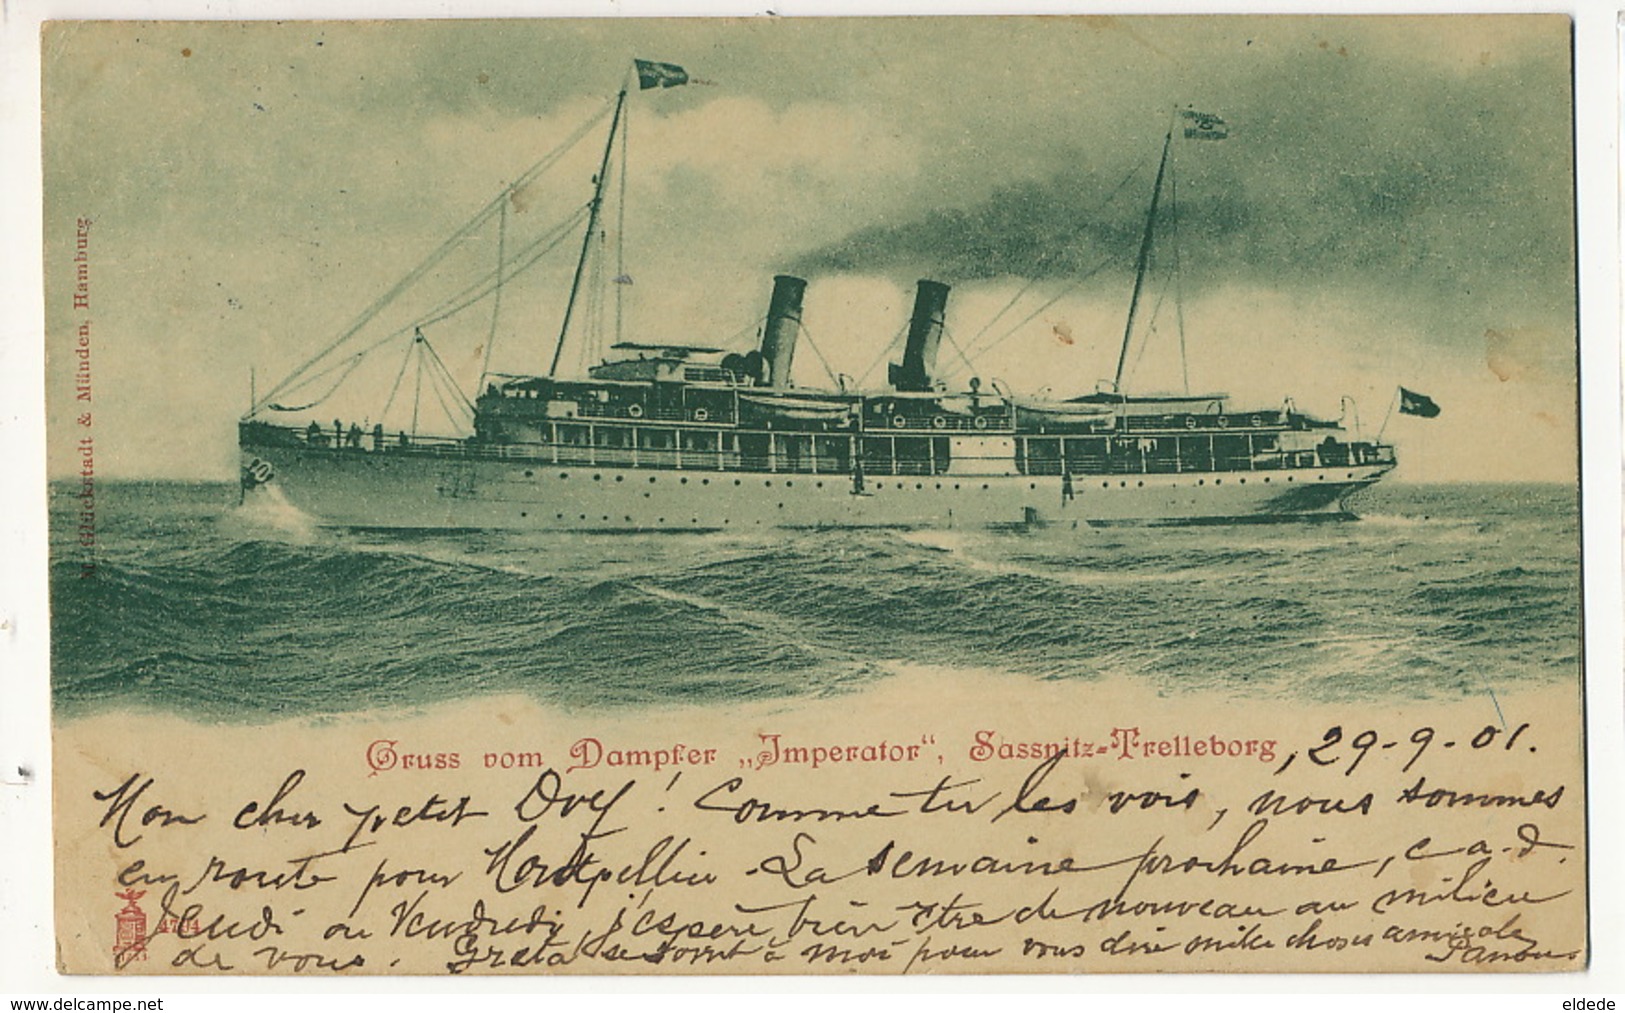 M. Glückstadt & Münden, Hamburg
Gruss vom Dampfer „Imperator“, Sassnitz-Trelleborg, 29-9-01.
Mon cher petit ! Comme tu les vois, nous sommes
en route pour Montpellier - La semaine prochaine, c a-d.
Jeudi ou Vendredi, j'espère bien être de nouveau au milieu
de vous. Greta se joint à moi pour vous dire mille choses amicales
4794
www.delcampe.net
eldede